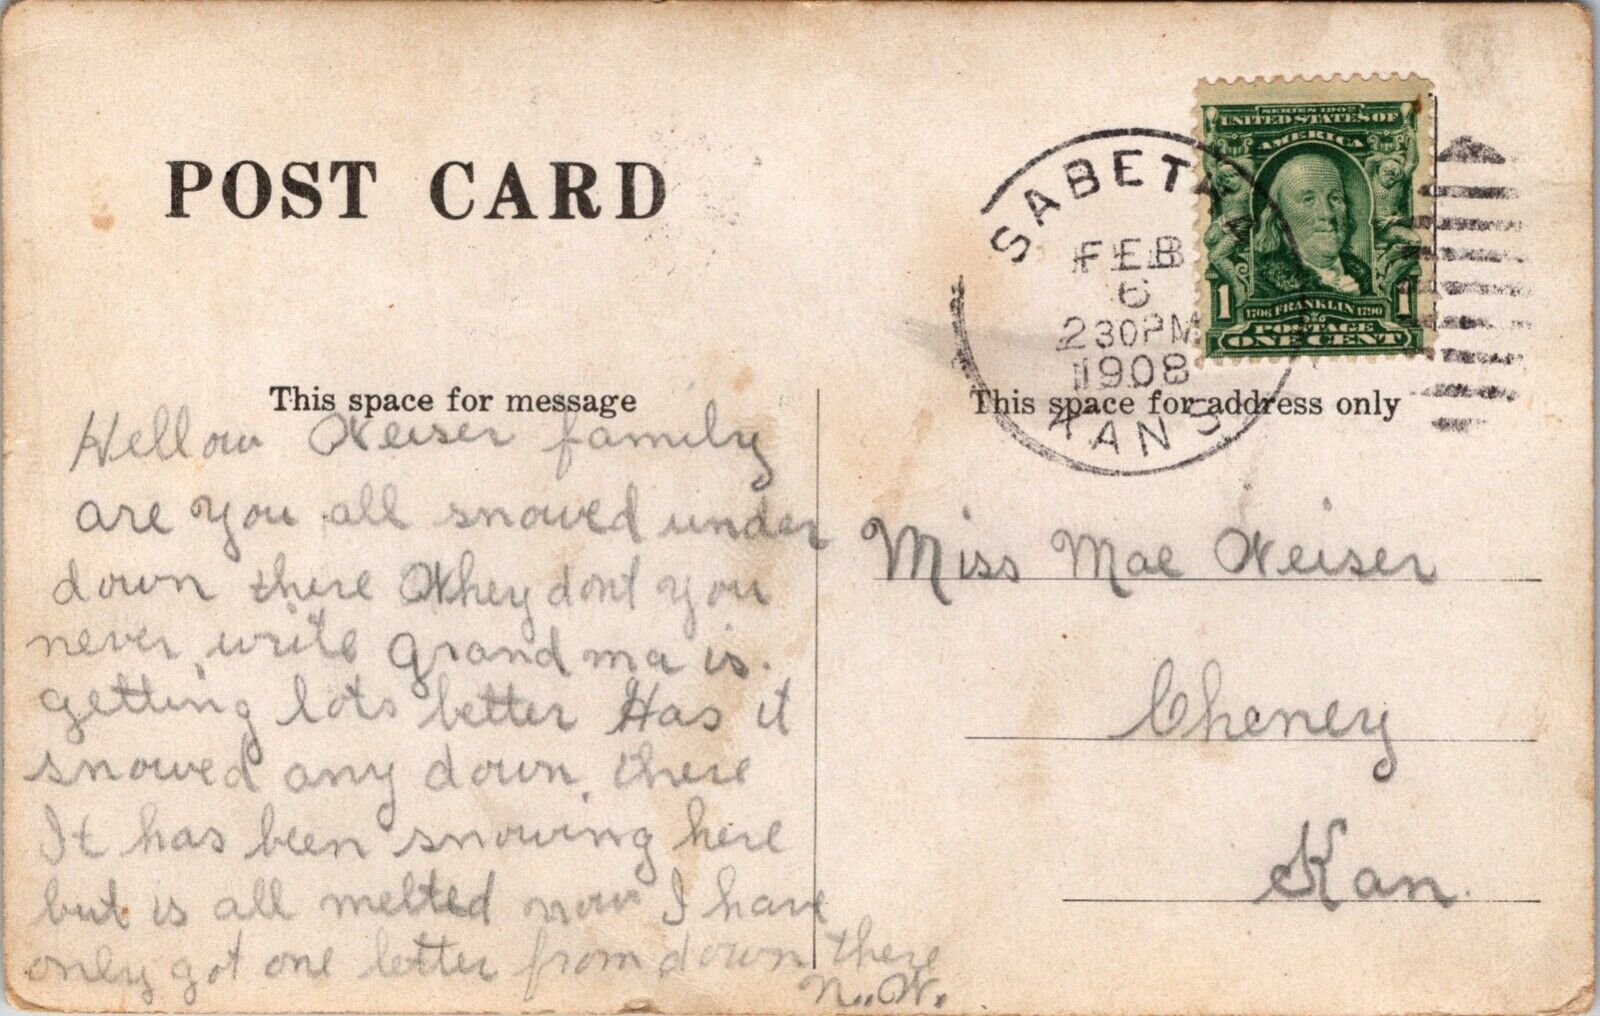 POST CARD
SERIES 1902
UNITED STATES OF
AMERICA
1 1706 FRANKLIN 1790 1
POSTAGE
ONE CENT
SABETHA
FEB
6
230PM
1908
KANS
This space for message
Hellow Weiser family
are you all snowed under
down there Whey dont you
never write Grandma is
getting lots better Has it
snowed any down there
It has been snowing here
but is all melted now I have
only got one letter from down there
N. W.
This space for address only
Miss Mae Weiser
Cheney
Kan.